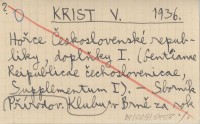 ?
O KRIST V. 1936.
Hořce Československé repub-
liky, doplňky I. (Gentianae
Reipublicae čechoslovenicae,
Supplementum I). Sborník
Přírodov. Klubu v Brně za rok